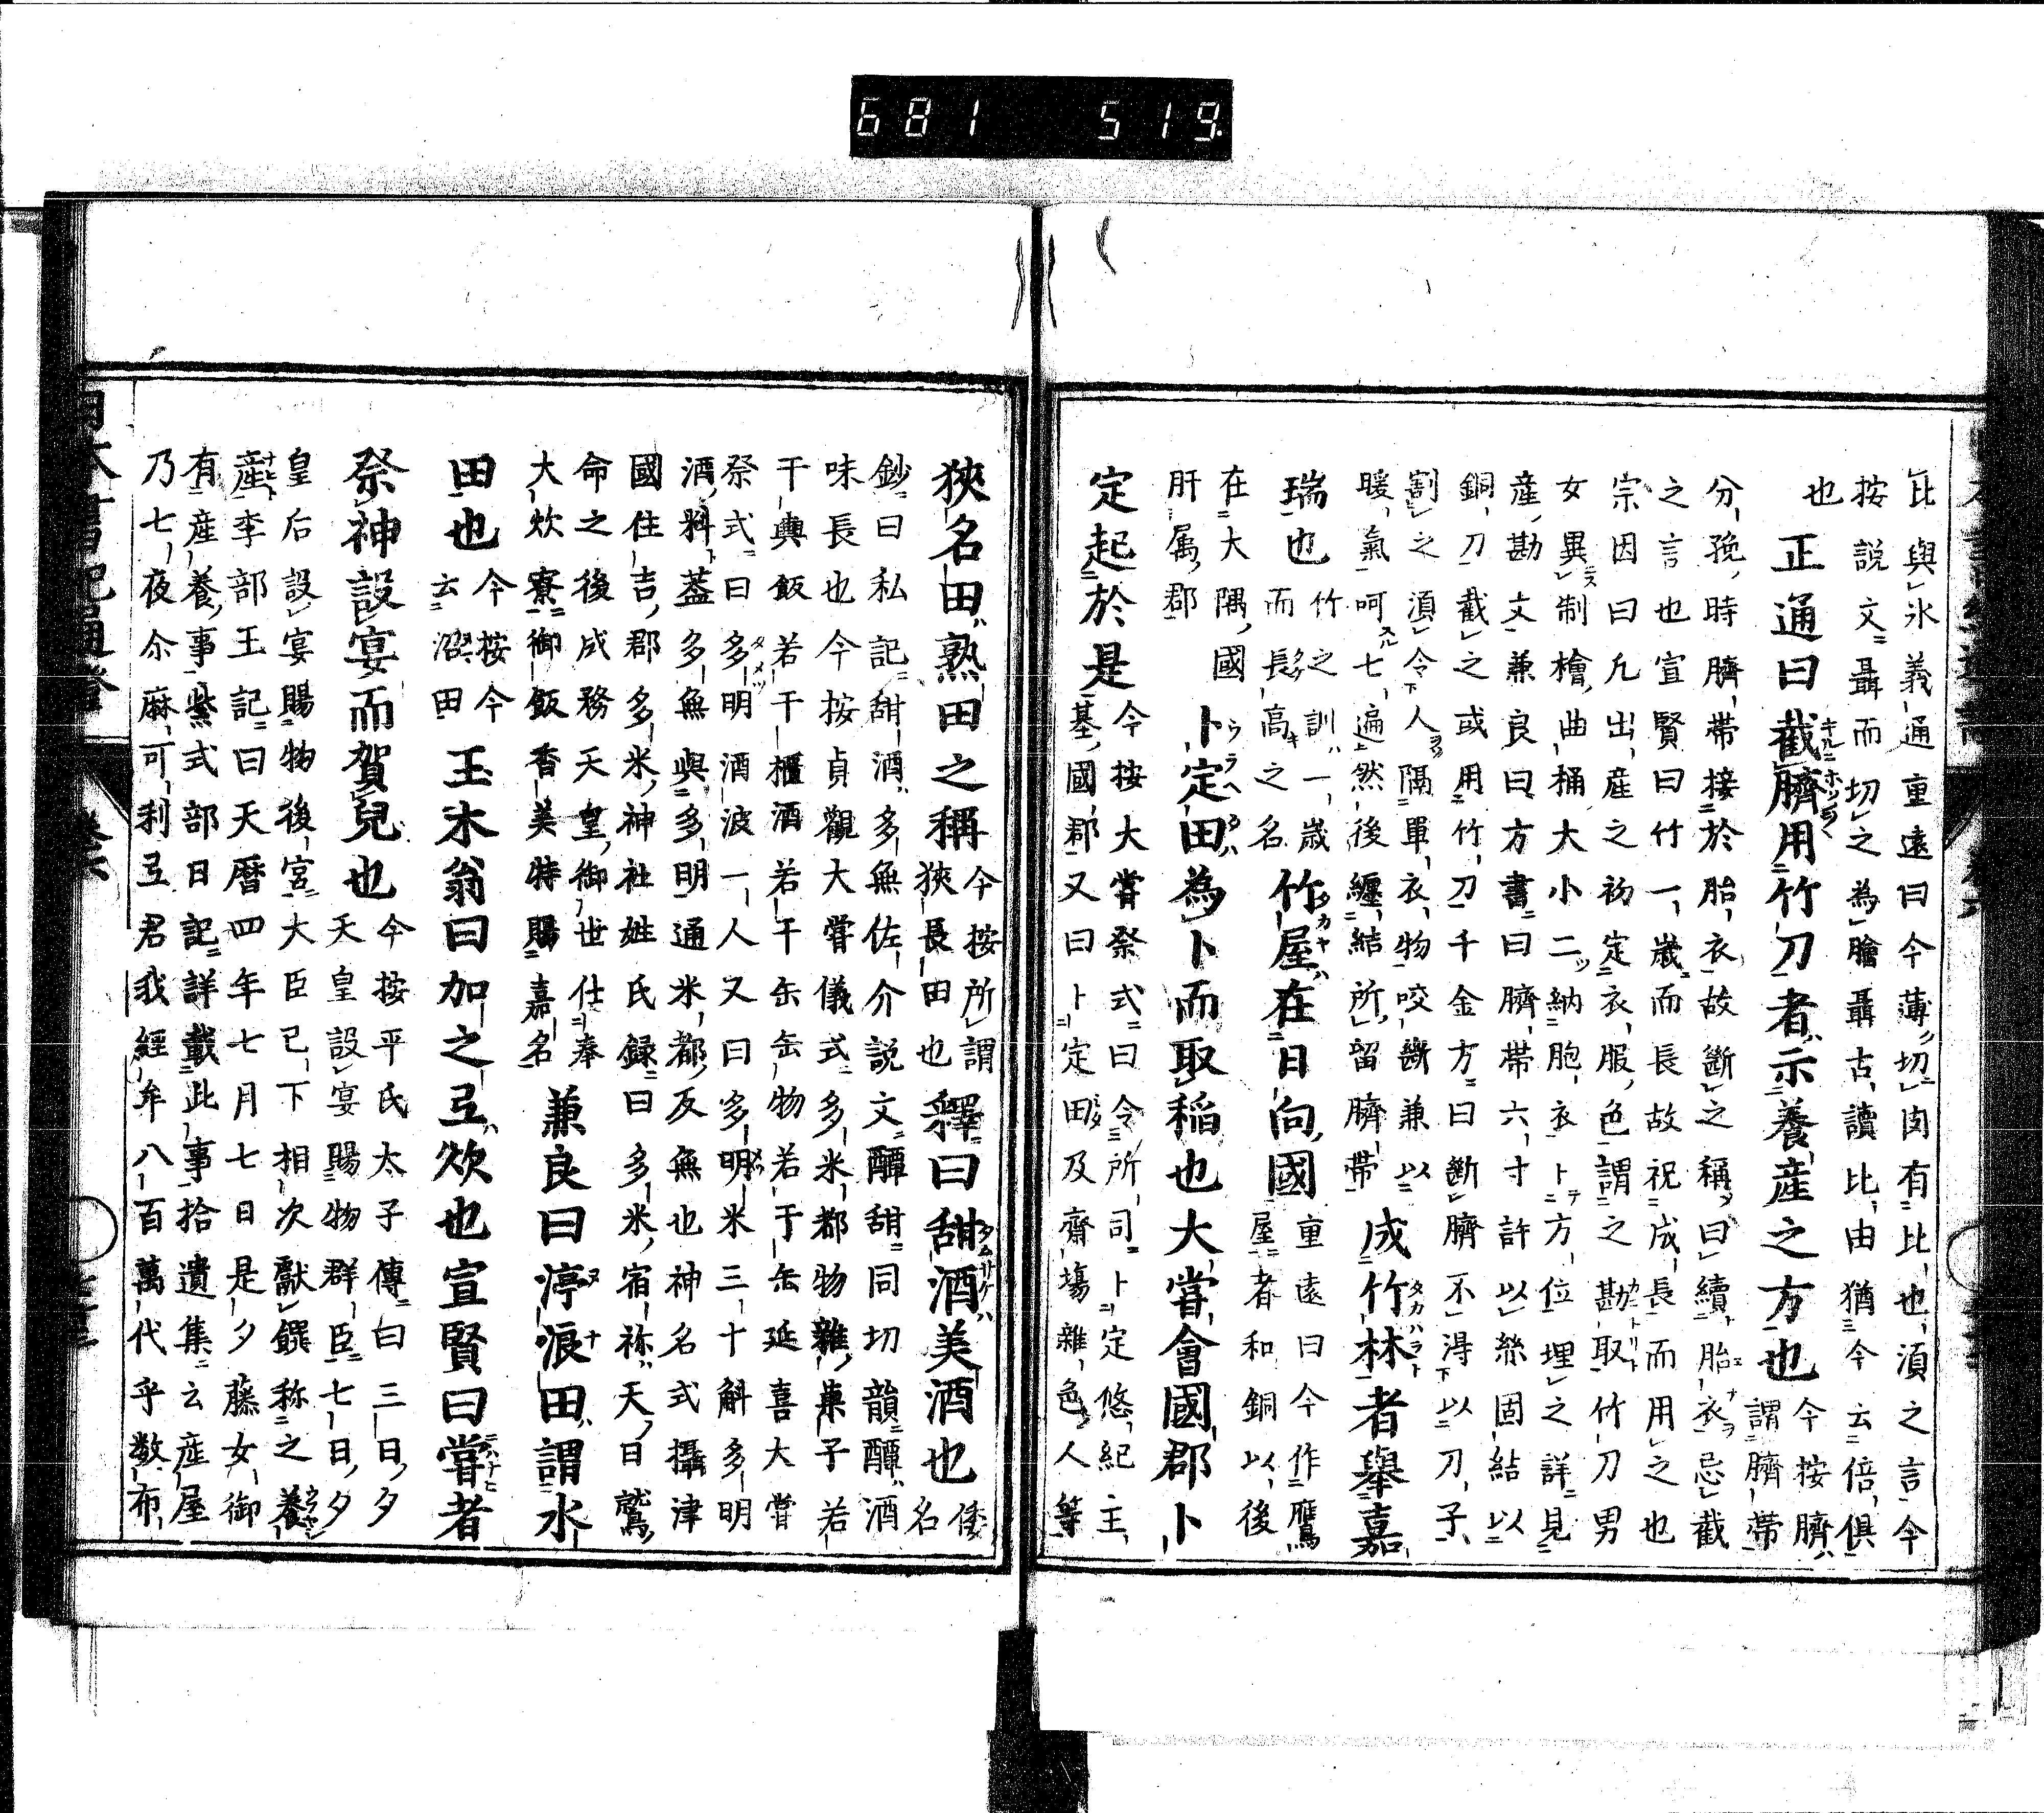 681 519.
比與氷義通重遠曰今薄切肉有比也湏之言今
按說文聶而切之為膾聶古讀比由猶今云倍俱
也
正通曰截臍用竹刀者示養産之方也
今按臍
謂臍帯
分娩時臍帯接於胎衣故斷之稱曰續胎衣忌截
之言也宣賢曰竹一歳而長故祝成長而用之也
宗因曰凡出産之初定衣服色謂之勘取竹刀男
女異制檜曲桶大小二納胞衣卜方位埋之詳見
産勘文兼良曰方書曰臍帯六寸許以絲固結以
銅刀截之或用竹刀千金方曰斷臍不得以刀子
割之湏令人隔單衣物咬斷兼以
暖氣呵七遍然後纏結所留臍帯
成竹林者舉嘉
瑞也
竹之訓一歳
而長高之名
竹屋在日向國
重遠曰今作鷹
屋者和銅以後
在大隅國
肝属郡
卜定田為卜而取稲也大甞會國郡卜
定起於是
今按大甞祭式曰令所司卜定悠紀主
基國郡又曰卜定田及齋塲雜色人等
狹名田熟田之稱
今按所謂
狹長田也
釋曰甜酒美酒也
倭
名
鈔曰私記甜酒多無佐介説文醰甜同切韻醰酒
味長也今按貞觀大甞儀式多米都物雜菓子若
干輿飯若干櫃酒若干缶缶物若干缶延喜大甞
祭式曰多明酒波一人又曰多明米三十斛多明
酒料葢多無與多明通米都反無也神名式攝津
國住吉郡多米神社姓氏録曰多米宿祢天日鷲
命之後成務天皇御世仕奉
大炊寮御飯香美特賜嘉名
兼良曰渟浪田謂水
田也
今按今
云沼田
玉木翁曰加之弖炊也宣賢曰甞者
祭神設宴而賀兒也
今按平氏太子傳曰三日夕
天皇設宴賜物群臣七日夕
皇后設宴賜物後宮大臣已下相次獻饌称之養
産李部王記曰天暦四年七月七日是夕藤女御
有産養事紫式部日記詳載此事拾遺集云産屋
乃七夜尓麻可利弖君我經牟八百萬代乎数布